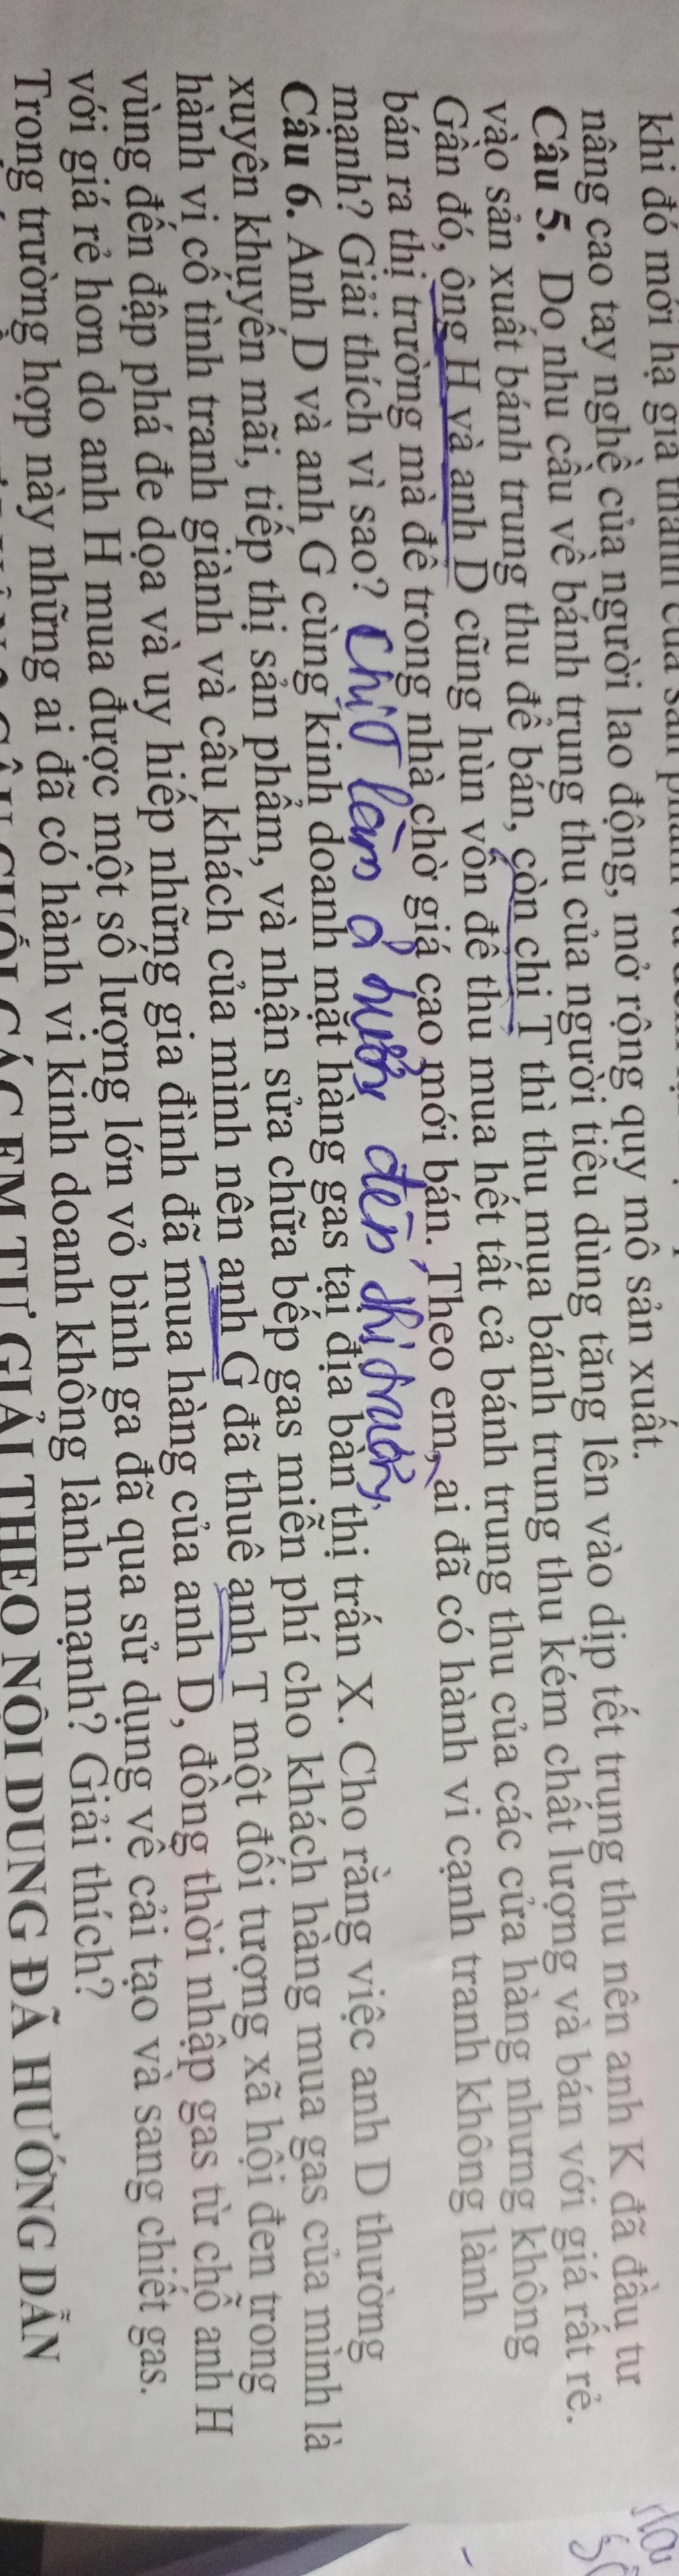 khi đó mới hạ giá thành của sản
nâng cao tay nghề của người lao động, mở rộng quy mô sản xuất.
Câu 5. Do nhu cầu về bánh trung thu của người tiêu dùng tăng lên vào dịp tết trung thu nên anh K đã đầu tư
vào sản xuất bánh trung thu để bán, còn chị T thì thu mua bánh trung thu kém chất lượng và bán với giá rất rẻ.
Gần đó, ông H và anh D cũng hùn vốn để thu mua hết tất cả bánh trung thu của các cửa hàng nhưng không
bán ra thị trường mà để trong nhà chờ giá cao mới bán. Theo em, ai đã có hành vi cạnh tranh không lành
mạnh? Giải thích vì sao? Chị T làm ả hưởng đến thị trường.
Câu 6. Anh D và anh G cùng kinh doanh mặt hàng gas tại địa bàn thị trấn X. Cho rằng việc anh D thường
xuyên khuyến mãi, tiếp thị sản phẩm, và nhận sửa chữa bếp gas miễn phí cho khách hàng mua gas của mình là
hành vi cố tình tranh giành và câu khách của mình nên anh G đã thuê anh T một đối tượng xã hội đen trong
vùng đến đập phá đe dọa và uy hiếp những gia đình đã mua hàng của anh D, đồng thời nhập gas từ chỗ anh H
với giá rẻ hơn do anh H mua được một số lượng lớn vỏ bình ga đã qua sử dụng về cải tạo và sang chiết gas.
Trong trường hợp này những ai đã có hành vi kinh doanh không lành mạnh? Giải thích?
CÂU CUỐI CÁC EM TỰ GIẢI THEO NỘI DUNG ĐÃ HƯỚNG DẪN